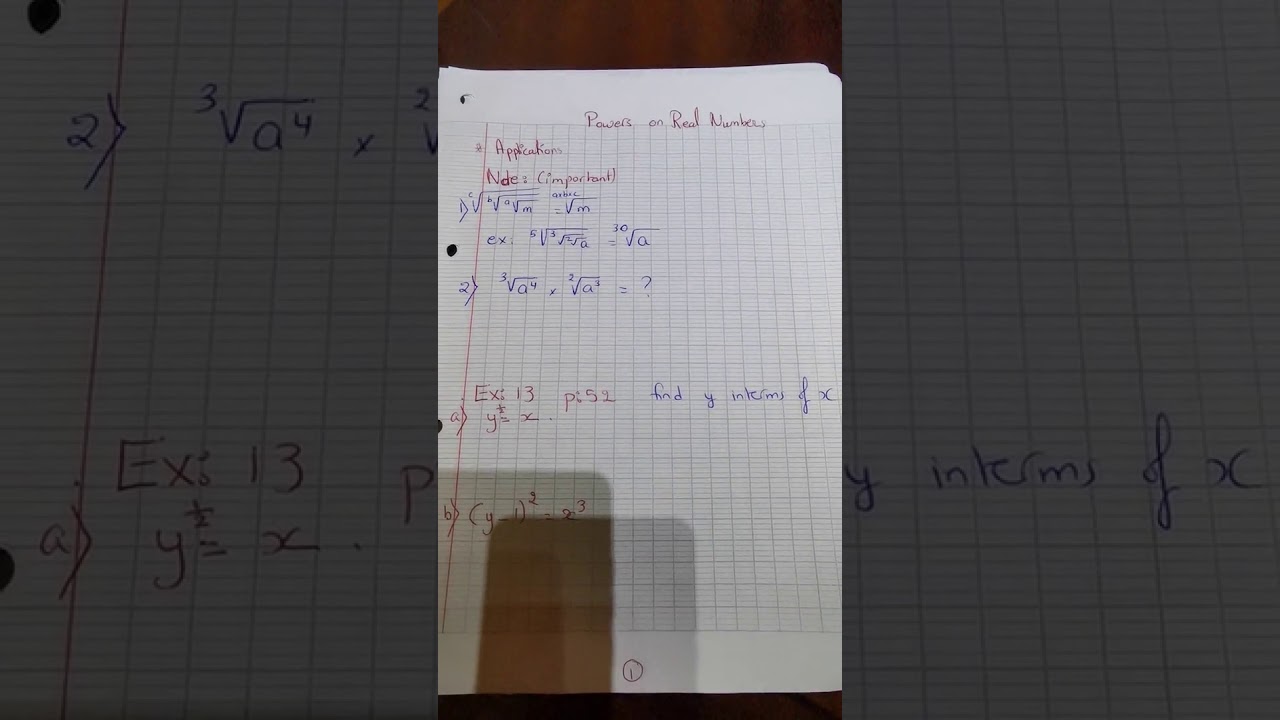 Powers on Real Numbers
* Applications
Note: (important)
1) ᶜ√(ᵇ√(ᵃ√m)) = ᵃˣᵇˣᶜ√m
ex: ⁵√(³√(²√a)) = ³⁰√a
2) ³√a⁴ × ²√a³ = ?
Ex: 13 p:52 find y interms of x
a) y^½ = x.
b) (y-1)² = x³
1